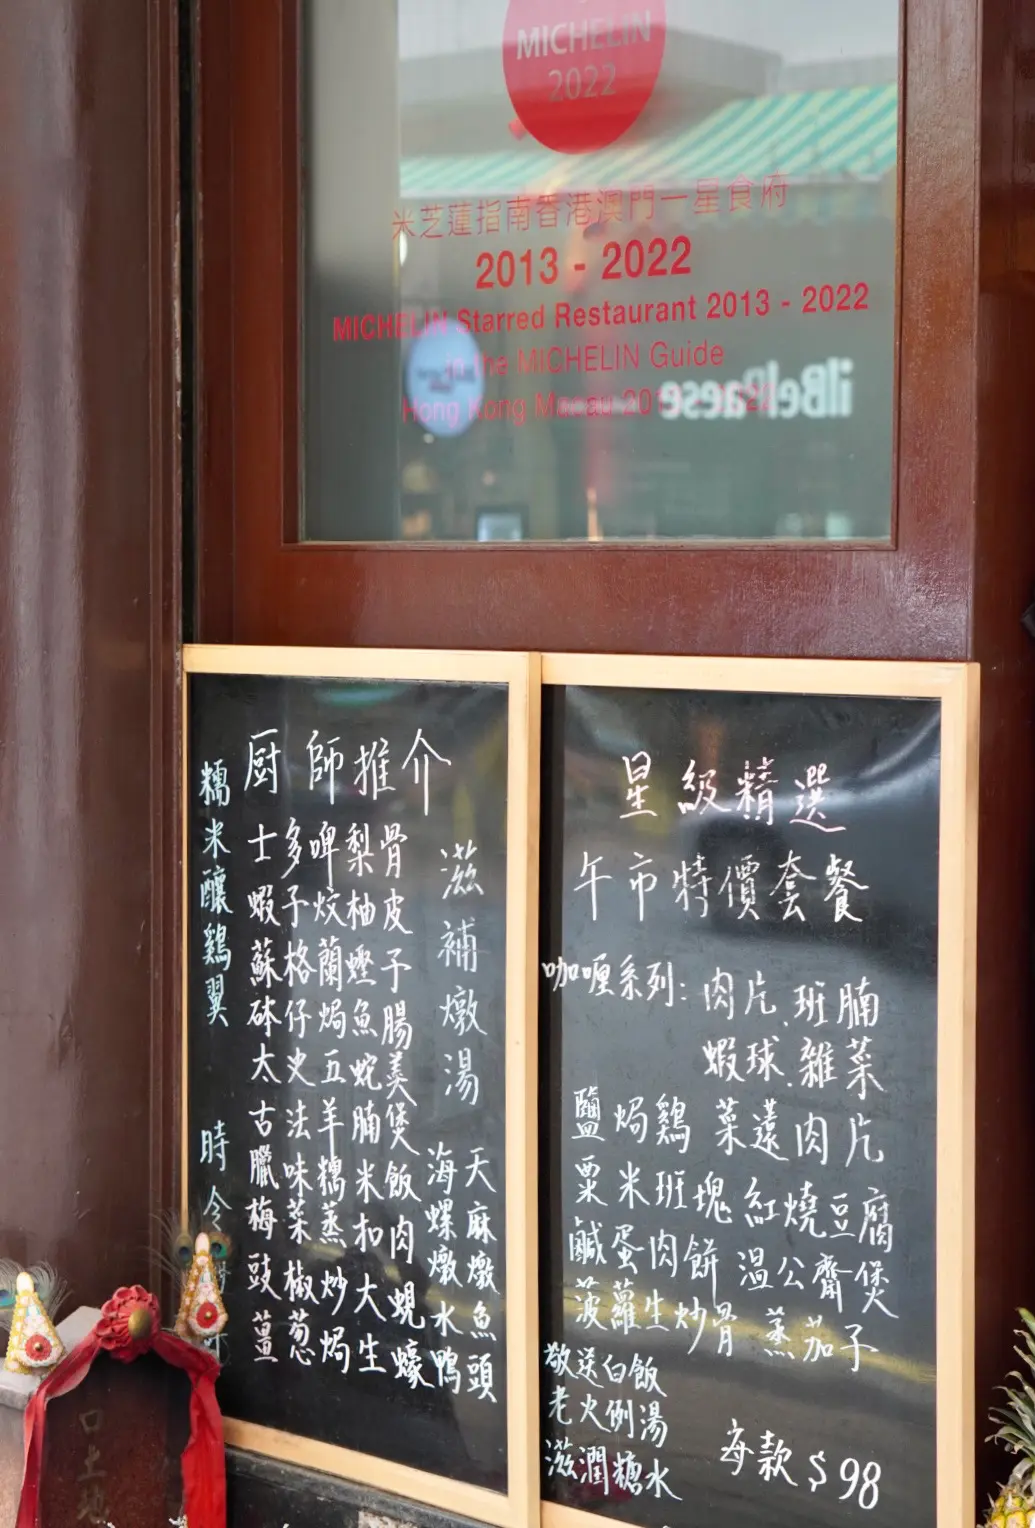 MICHELIN
2022
米芝蓮指南香港澳門一星食府
2013 - 2022
MICHELIN Starred Restaurant 2013 - 2022
in the MICHELIN Guide
Hong Kong Macau
ilBelPaese
厨師推介
士多啤梨骨
蝦子炆柚皮
蘇格蘭蟶子
砵仔焗魚腸
太史五蛇羹
古法羊腩煲
臘味糯米飯
梅菜蒸扣肉
豉椒炒大蜆
薑葱焗生蠔
滋補燉湯
天麻燉魚頭
海螺燉水鴨
糯米釀鷄翼
時令
星級精選
午市特價套餐
咖喱系列: 肉片.班腩
蝦球.雜菜
鹽焗鷄 菜薳肉片
粟米班塊 紅燒豆腐
鹹蛋肉餅 溫公齋煲
菠蘿生炒骨 蒸茄子
敬送白飯
老火例湯
滋潤糖水
每款$98